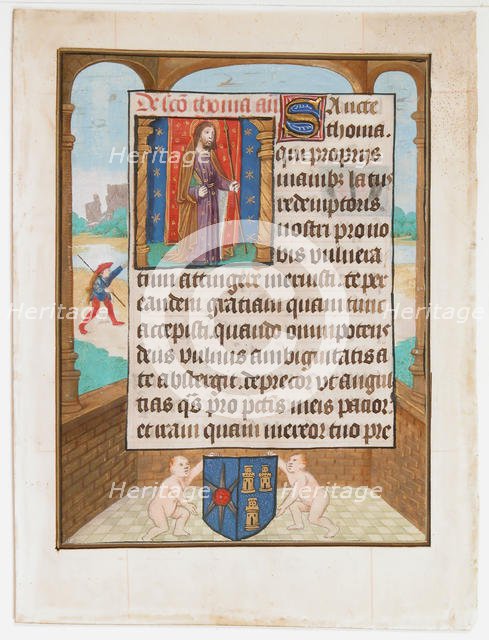 De sco thoma an
Sancte
thoma.
qui proprijs
manibus latus
redemptoris
nostri pro no
bis vulnera
tum attingere meruisti. te per
eandem gratiam quam tunc
accepisti. quando omnipotens
deus vulnus ambiguitatis a
te abstergit. deprecor vt angus
tias qs pro pctis meis pacior.
et iram quam mereor tuo pre
Heritage
Heritage
Heritage
Heritage
Heritage
Heritage
Heritage
Heritage
Heritage